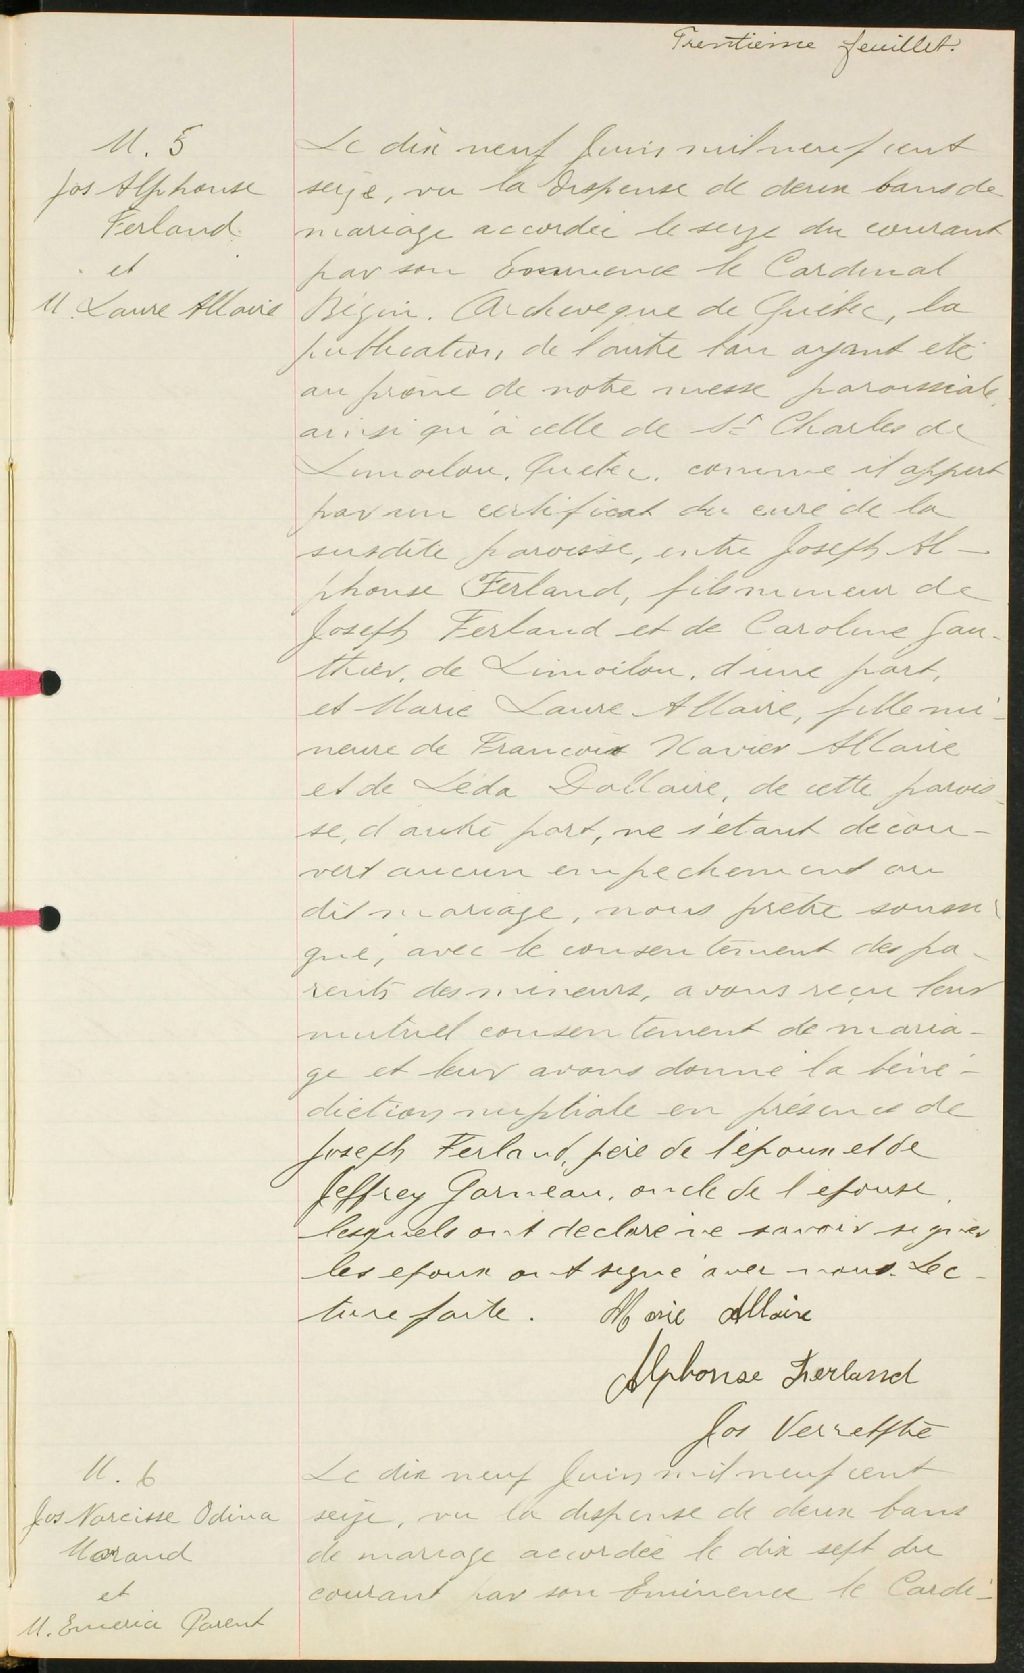 Trentième feuillet.
M. 5
Jos Alphonse
Ferland
et
M. Laure Allaire
Le dix neuf Juin mil neuf cent
seize, vu la dispense de deux bans de
mariage accordée le seize du courant
par son Eminence le Cardinal
Bégin. Archeveque de Québec, la
publication, de l'autre ban ayant eté
au prône de notre messe paroissiale,
ainsi qu'à celle de St Charles de
Limoilou. Quebec. comme il appert
par un certificat du curé de la
susdite paroisse, entre Joseph Al-
phonse Ferland, fils mineur de
Joseph Ferland et de Caroline Gau-
thier, de Limoilou, d'une part,
et Marie Laure Allaire, fille mi-
neure de Francois Xavier Allaire
et de Léda Dallaire, de cette parois-
se, d'autre part, ne s'etant décou-
vert aucun empechement au
dit mariage, nous prêtre soussi-
gné, avec le consentement des pa-
rents des mineurs, avons reçu leur
mutuel consentement de maria-
ge et leur avons donné la béné-
diction nuptiale en présence de
Joseph Ferland, père de l'époux et de
Jeffrey Garneau, oncle de l'epouse,
lesquels ont declaré ne savoir signer
les epoux ont signé avec nous. Lec-
ture faite. Marie Allaire
Alphonse Ferland
Jos Verret Ptre
M. 6
Jos Narcisse Odina
Marand
et
M. Emeria Parent
Le dix neuf Juin mil neuf cent
seize, vu la dispense de deux bans
de mariage accordée le dix sept du
courant par son Eminence le Cardi-